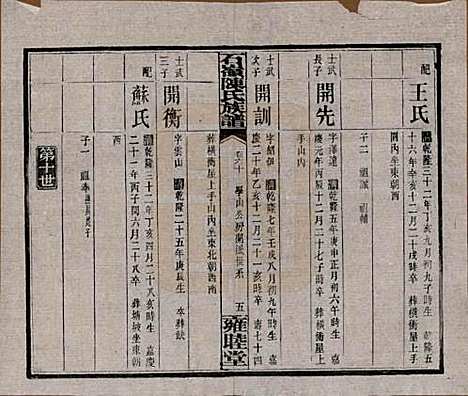 配
王氏
乾隆三十二年丁亥九月初九子時生 嘉慶五
十六年辛亥十二月二十戌時卒 葬橫衝屋上手山
圍內坐東朝西
子二 祖誠 祖輔
士武
長子
開先
字澤遠 乾隆五年庚申正月初六午時生 嘉
慶元年丙辰十二月二十七子時卒 葬橫衝屋上
手山內
士武
次子
開訓
字紹伊 乾隆七年壬戌八月初九午時生 嘉
慶二十年乙亥十二月二十一亥時卒 壽七十四
葬橫衝屋上手山內坐東北朝西南
石嶺陳氏族譜
卷六十
五
雍睦堂
士武
三子
開衡
字岳山 乾隆二十五年庚辰生 卒葬缺
配
蘇氏
乾隆三十二年丁亥四月二十八亥時生 嘉慶
二十一年丙子閏六月二十八卒 葬塘坡坐東朝
西
子一 祖奉
第 世